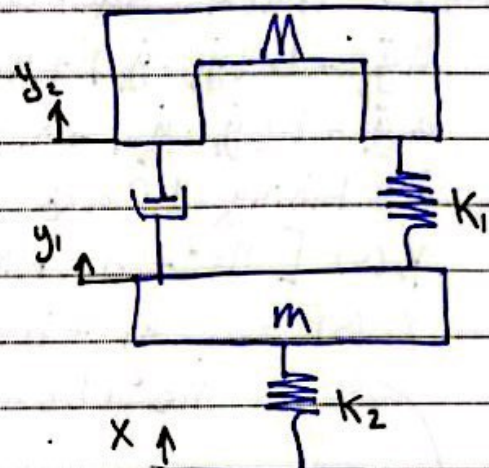 M
y₂
K₁
y₁
m
K₂
X